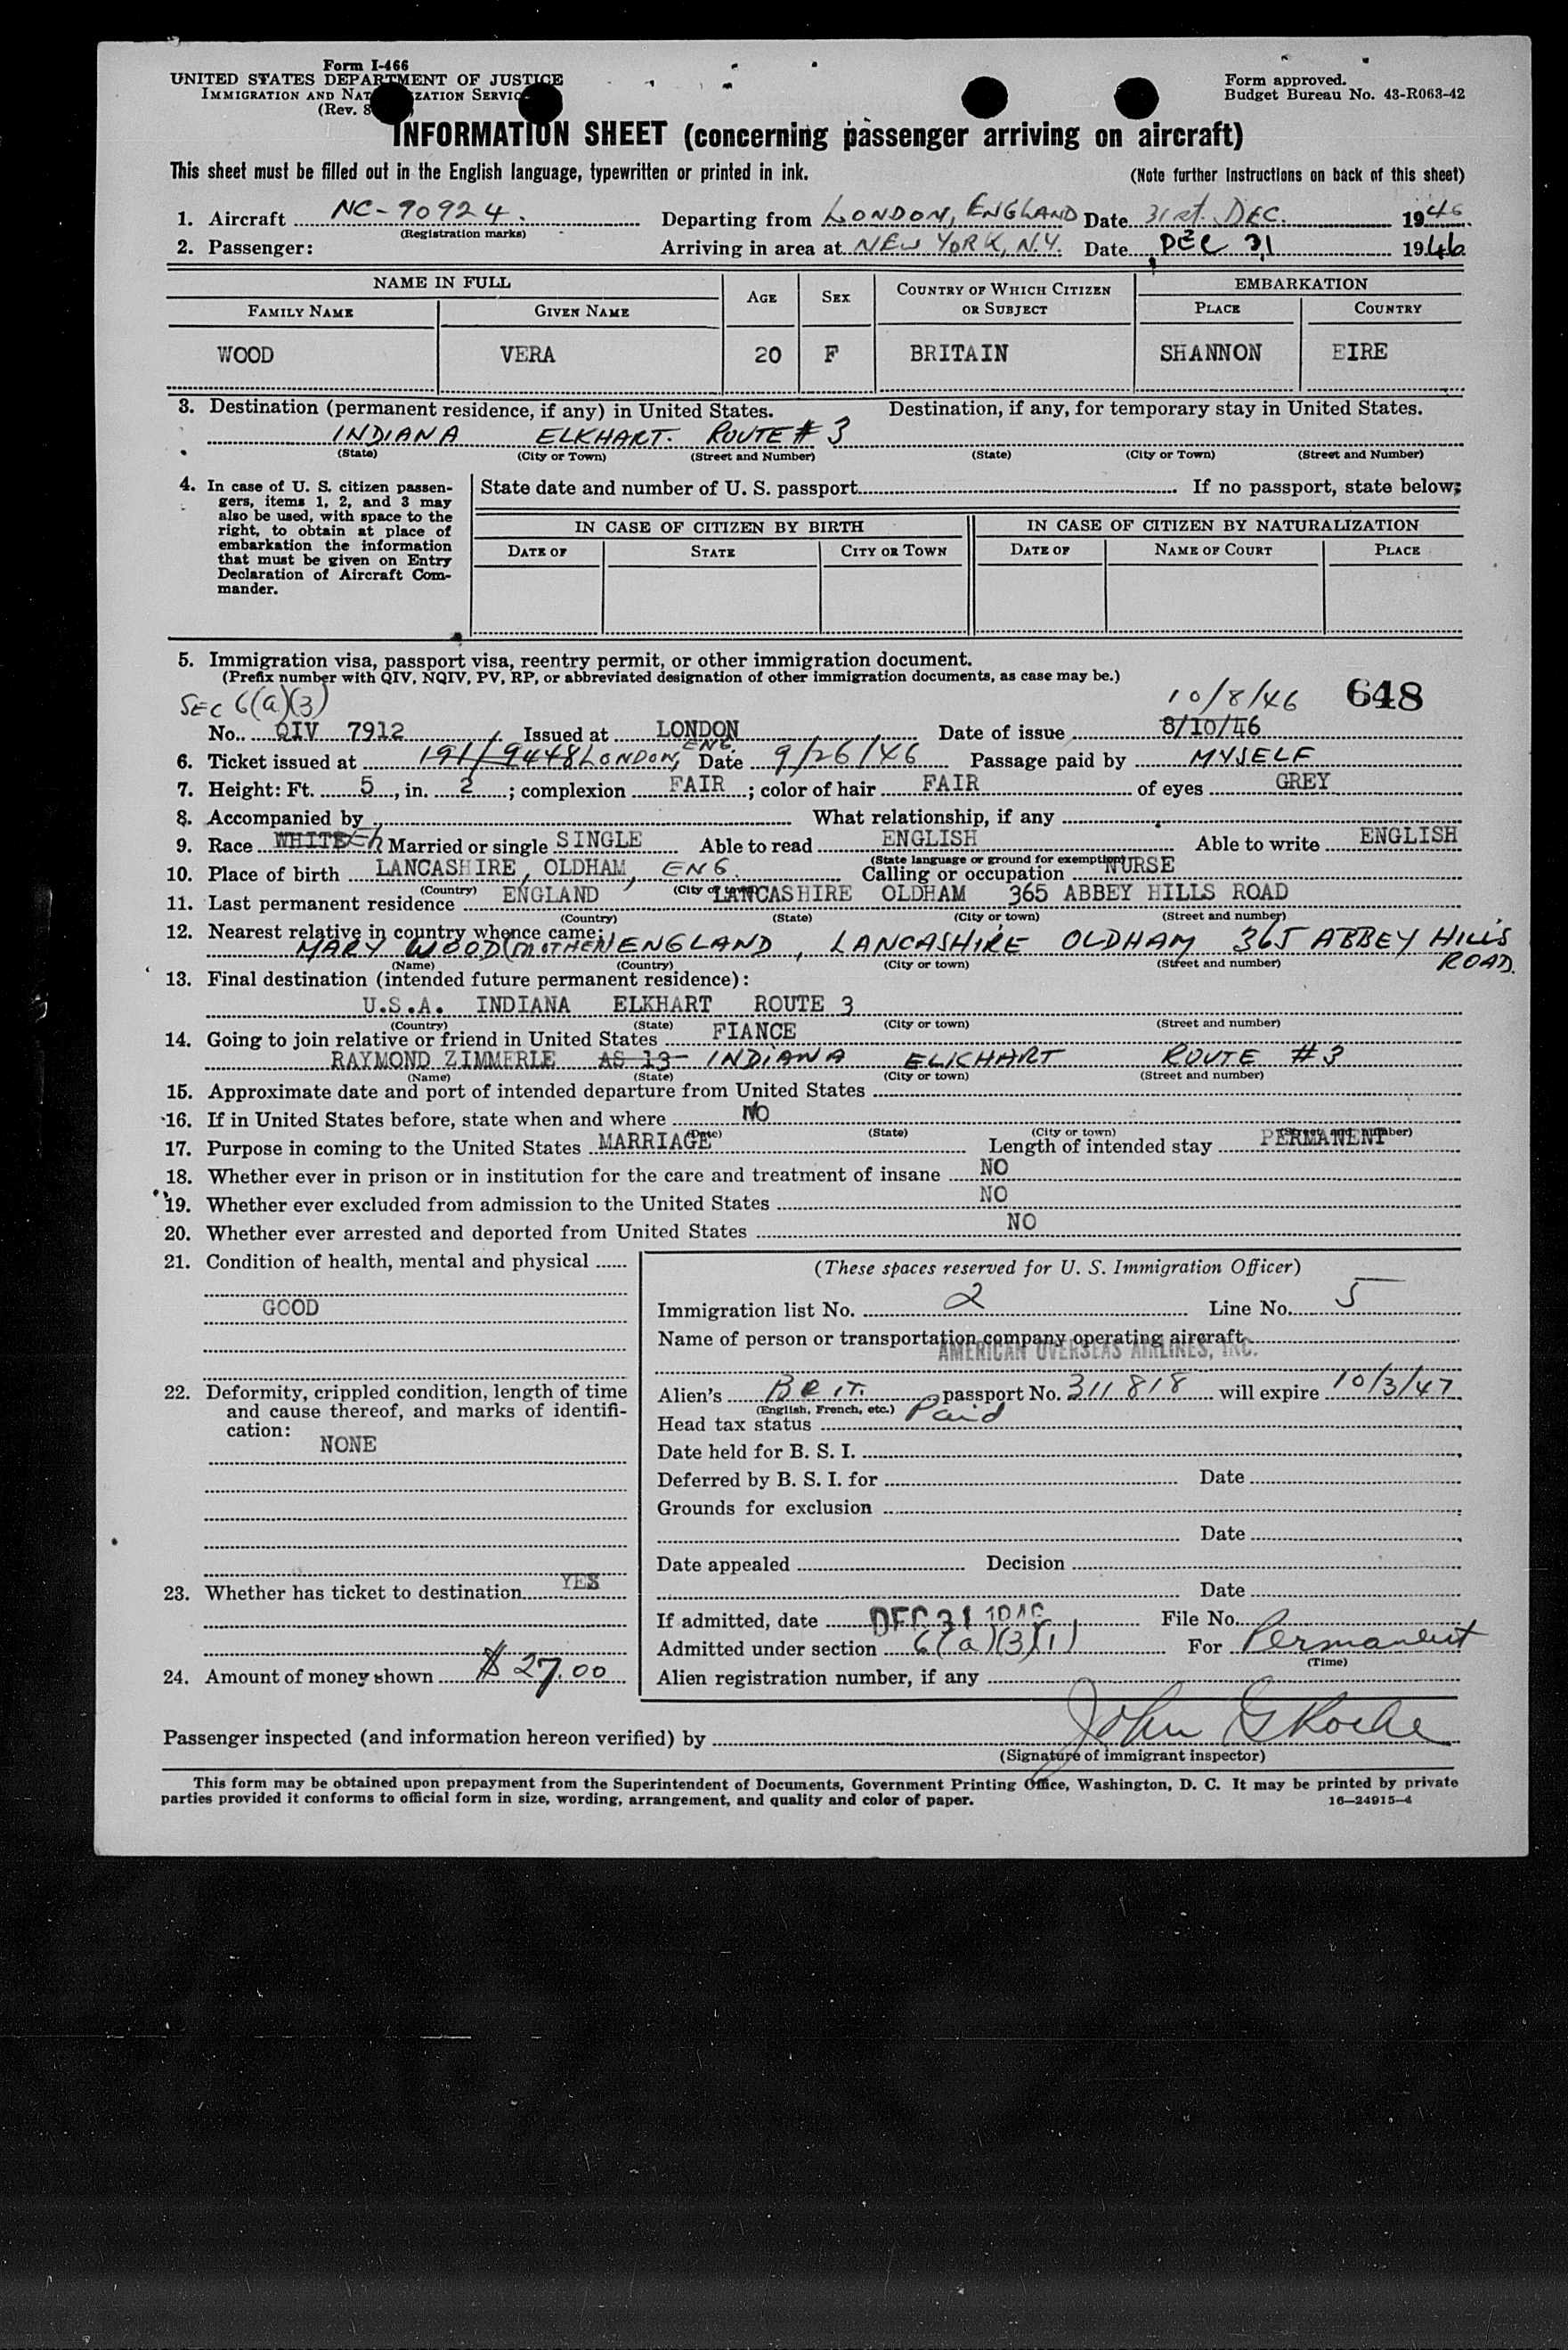 Form I-466
UNITED STATES DEPARTMENT OF JUSTICE
IMMIGRATION AND NAT ZATION SERVIC
(Rev. 8
Form approved.
Budget Bureau No. 43-R063-42
INFORMATION SHEET (concerning passenger arriving on aircraft)
This sheet must be filled out in the English language, typewritten or printed in ink. (Note further instructions on back of this sheet)
1. Aircraft NC-90924. Departing from LONDON, ENGLAND Date 31st. DEC. 1946
(Registration marks)
2. Passenger: Arriving in area at NEW YORK, N.Y. Date DEC 31 1946
NAME IN FULL AGE SEX COUNTRY OF WHICH CITIZEN OR SUBJECT EMBARKATION
FAMILY NAME GIVEN NAME PLACE COUNTRY
WOOD VERA 20 F BRITAIN SHANNON EIRE
3. Destination (permanent residence, if any) in United States. Destination, if any, for temporary stay in United States.
INDIANA ELKHART. ROUTE # 3
(State) (City or Town) (Street and Number) (State) (City or Town) (Street and Number)
4. In case of U. S. citizen passen-
gers, items 1, 2, and 3 may
also be used, with space to the
right, to obtain at place of
embarkation the information
that must be given on Entry
Declaration of Aircraft Com-
mander.
State date and number of U. S. passport If no passport, state below:
IN CASE OF CITIZEN BY BIRTH IN CASE OF CITIZEN BY NATURALIZATION
DATE OF STATE CITY OR TOWN DATE OF NAME OF COURT PLACE
5. Immigration visa, passport visa, reentry permit, or other immigration document.
(Prefix number with QIV, NQIV, PV, RP, or abbreviated designation of other immigration documents, as case may be.)
SEC 6(a)(3) 10/8/46 648
No. QIV 7912 Issued at LONDON Date of issue 8/10/46
6. Ticket issued at 191/9448 LONDON, ENG. Date 9/26/46 Passage paid by MYSELF
7. Height: Ft. 5, in. 2; complexion FAIR; color of hair FAIR of eyes GREY
8. Accompanied by What relationship, if any
9. Race WHITE Eh Married or single SINGLE Able to read ENGLISH Able to write ENGLISH
(State language or ground for exemption)
10. Place of birth LANCASHIRE, OLDHAM, ENG. Calling or occupation NURSE
(Country) (City or town)
11. Last permanent residence ENGLAND LANCASHIRE OLDHAM 365 ABBEY HILLS ROAD
(Country) (State) (City or town) (Street and number)
12. Nearest relative in country whence came:
MARY WOOD (MOTHER) ENGLAND, LANCASHIRE OLDHAM 365 ABBEY HILLS ROAD.
(Name) (Country) (City or town) (Street and number)
13. Final destination (intended future permanent residence):
U.S.A. INDIANA ELKHART ROUTE 3
(Country) (State) (City or town) (Street and number)
14. Going to join relative or friend in United States FIANCE
RAYMOND ZIMMERLE AS 13 INDIANA ELKHART ROUTE #3
(Name) (State) (City or town) (Street and number)
15. Approximate date and port of intended departure from United States
16. If in United States before, state when and where NO
(Date) (State) (City or town) (Street and number)
17. Purpose in coming to the United States MARRIAGE Length of intended stay PERMANENT
18. Whether ever in prison or in institution for the care and treatment of insane NO
19. Whether ever excluded from admission to the United States NO
20. Whether ever arrested and deported from United States NO
21. Condition of health, mental and physical
GOOD
22. Deformity, crippled condition, length of time
and cause thereof, and marks of identifi-
cation:
NONE
23. Whether has ticket to destination YES
24. Amount of money shown $ 27.00
(These spaces reserved for U. S. Immigration Officer)
Immigration list No. 2 Line No. 5
Name of person or transportation company operating aircraft
AMERICAN OVERSEAS AIRLINES, INC.
Alien's BRIT. passport No. 311818 will expire 10/3/47
(English, French, etc.)
Head tax status Paid
Date held for B. S. I.
Deferred by B. S. I. for Date
Grounds for exclusion
Date
Date appealed Decision
Date
If admitted, date DEC 31 1946 File No.
Admitted under section 6(a)(3)(1) For Permanent
(Time)
Alien registration number, if any
Passenger inspected (and information hereon verified) by John G Roche
(Signature of immigrant inspector)
This form may be obtained upon prepayment from the Superintendent of Documents, Government Printing Office, Washington, D. C. It may be printed by private
parties provided it conforms to official form in size, wording, arrangement, and quality and color of paper. 16—24915-4